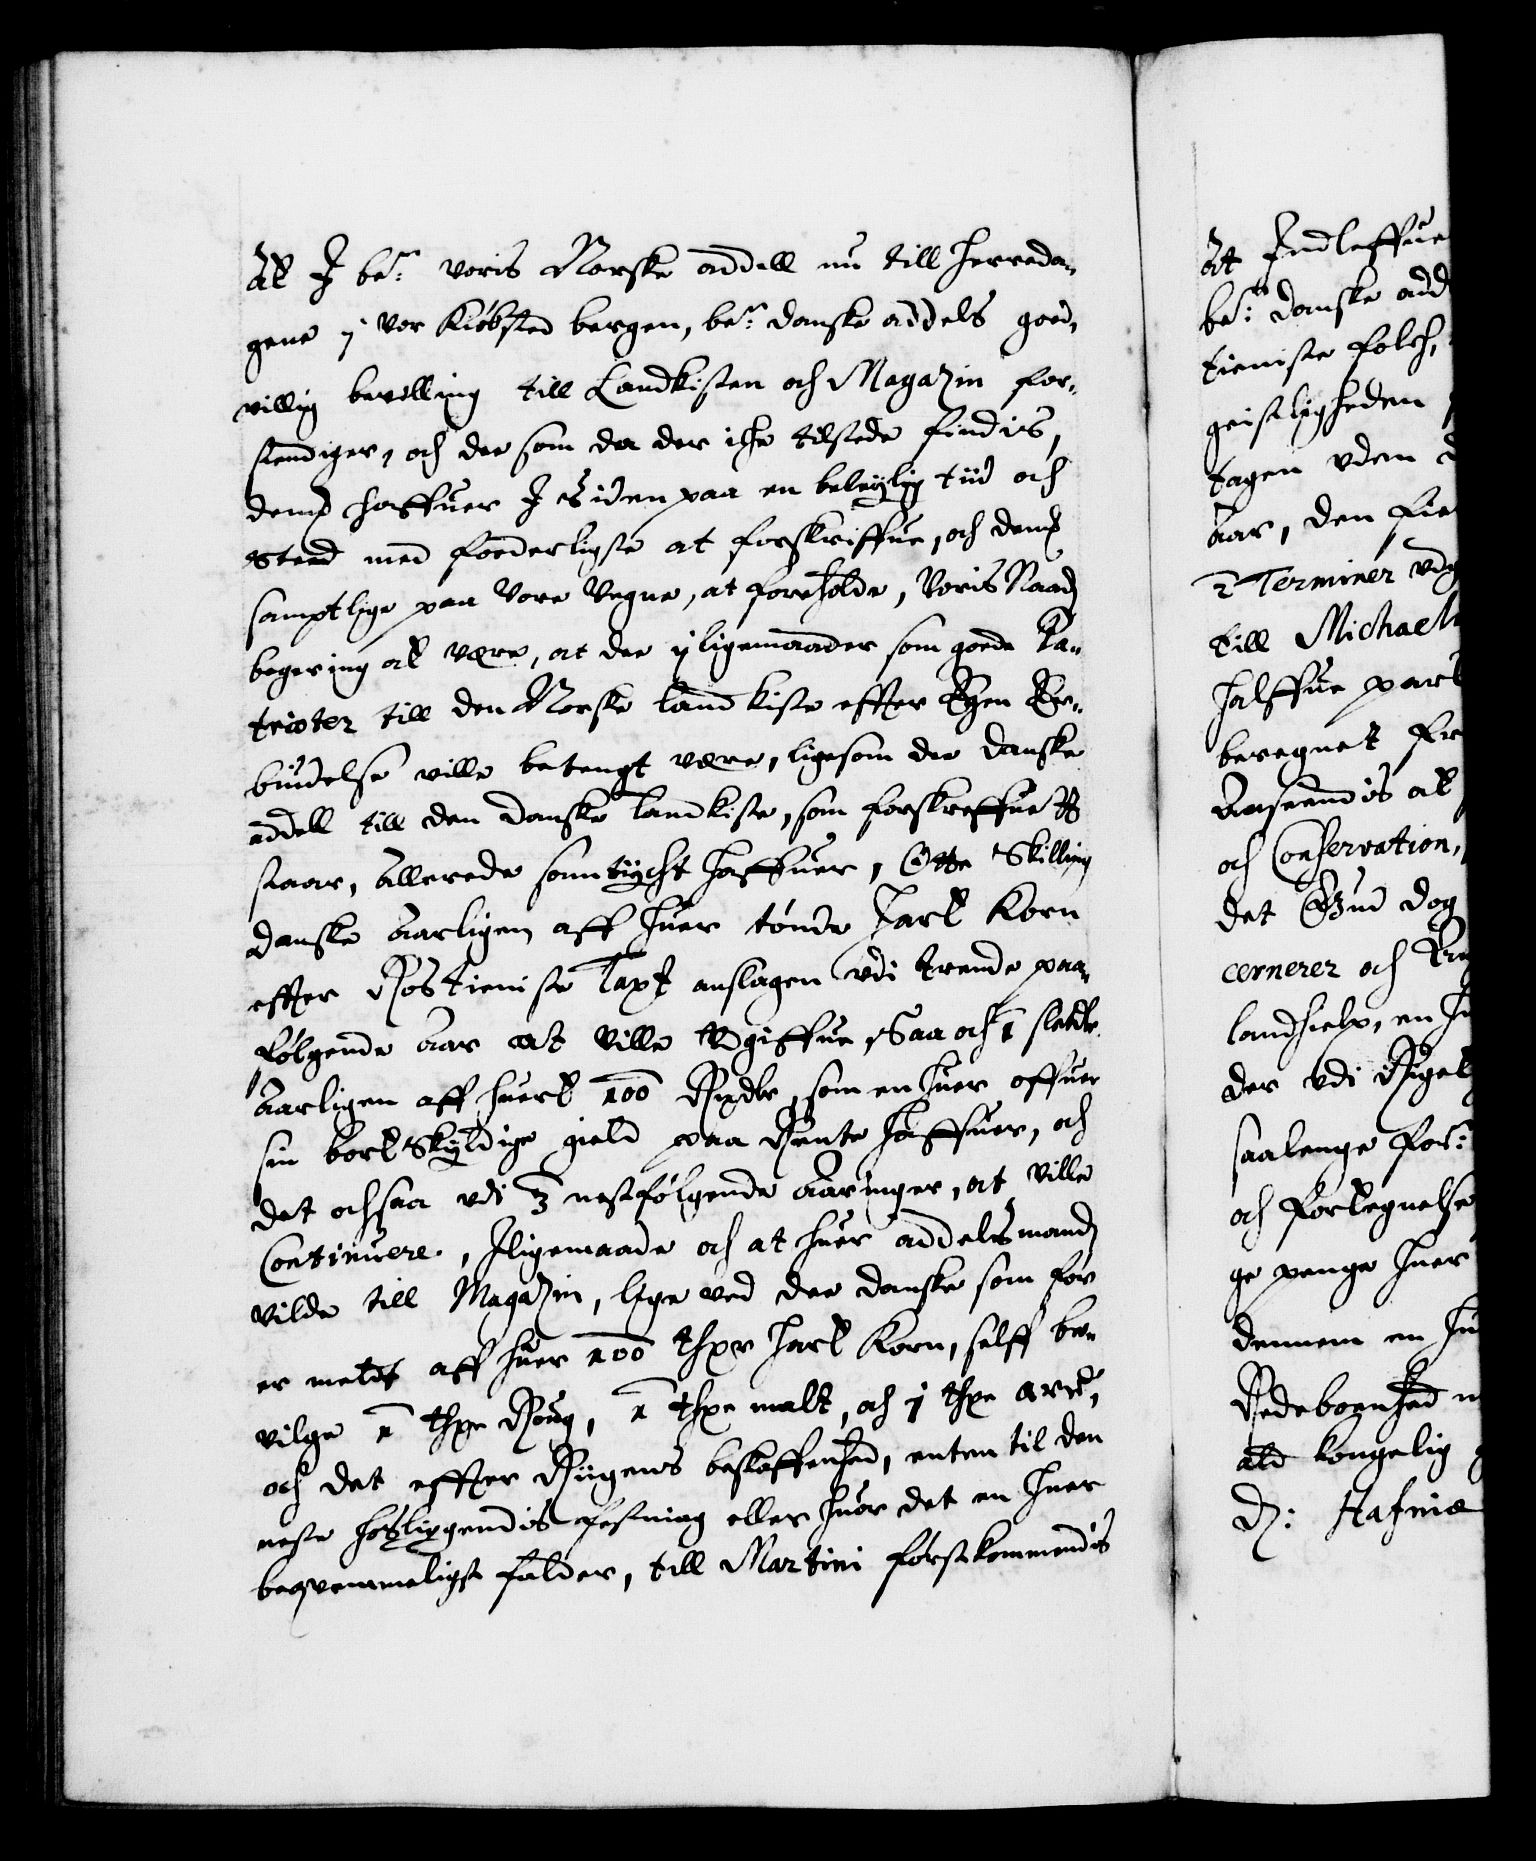 At I be:te voris Norske addell nu till herreda-
gene y vor Kiøbsted bergen, be:te danske addels goed-
villig bevilling till Landkisten och Magazin for-
stendiger, och dee som da der iche tilstede findis,
dennem haffuer I Siden paa en beleylig tiid och
Sted med forderligste at forskriffue, och dennem
samptlige paa Vore Vegne, at foreholde, Voris Naad:
begering at vere, at dee y ligemaader som goede Pa-
trioter till den Norske landkiste effter Egen Er-
biudelse ville betengt vere, ligesom dee danske
addell till den danske landkiste, som forskreffuet
staar, allerede samtycht haffuer, Otte Skilling
danske Aarligen aff huer tønde Hart Korn
effter Rostieniste Taxt anslagen vdi trende paa-
følgende Aar at ville Vdgiffue, Saa och 1 sletdr.
Aarligen aff huert 100 Rixdlr, som en huer offuer
sin bortskyldige gield paa Rente haffuer, och
det ochsaa vdi 3 nestfølgende Aaringer, at ville
Continuere, Iligemaade och at huer addelsmand
vilde till Magazin, lige ved dee danske som før
er meldt aff huer 100 thxr Hart Korn, selff be-
vilge 1 thxe Roug, 1 thxe malt, och 1 thxe erter,
och det effter Riigens beskaffenhed, enten til den
neste hosliggendis festning eller huor det en huer
beqvemmeligst falder, till Martini førstkommendis
At Indleffue
be:te danske add
tieniste folch,
geistligheden
tagen vden
Aar, den fie
2 Terminer vdg
till Michaeli
halffue part
beregnet fr
Anseendis at
och Conservation,
det Gud dog
cernerer och
landhielp, en hu
der vdi Riget
saalenge for:
och forlegnelse
ge penge huer
dennem en hu
Redeboenhed
ald kongelig
D: Hafniæ